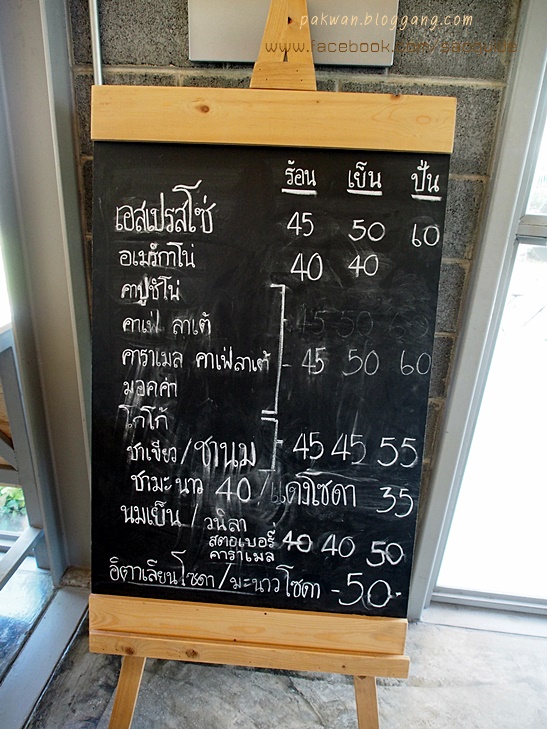 pakwan.bloggang.com
ร้อน เย็น ปั่น
เอสเปรสโซ่ 45 50 60
อเมริกาโน่ 40 40
คาปูชิโน่
คาเฟ่ ลาเต้
คาราเมล คาเฟ่ลาเต้ - 45 50 60
มอคค่า
โกโก้
ชาเขียว / ชานม 45 45 55
ชามะนาว 40 / แดงโซดา 35
นมเย็น / วนิลา
สตอเบอรี่ 40 40 50
คาราเมล
อิตาเลียนโซดา / มะนาวโซดา -50.-